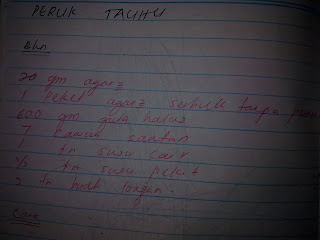 PERUK TAUHU
Bhn
20 gm agar2
1 peket agar2 serbuk tanpa
600 gm gula halus
7 cawan santan
1 tn susu cair
1/2 tn susu pekat
2 tn buah longan
Cara